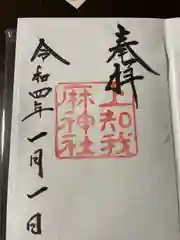 奉拝
上知我麻神社
令和四年一月一日